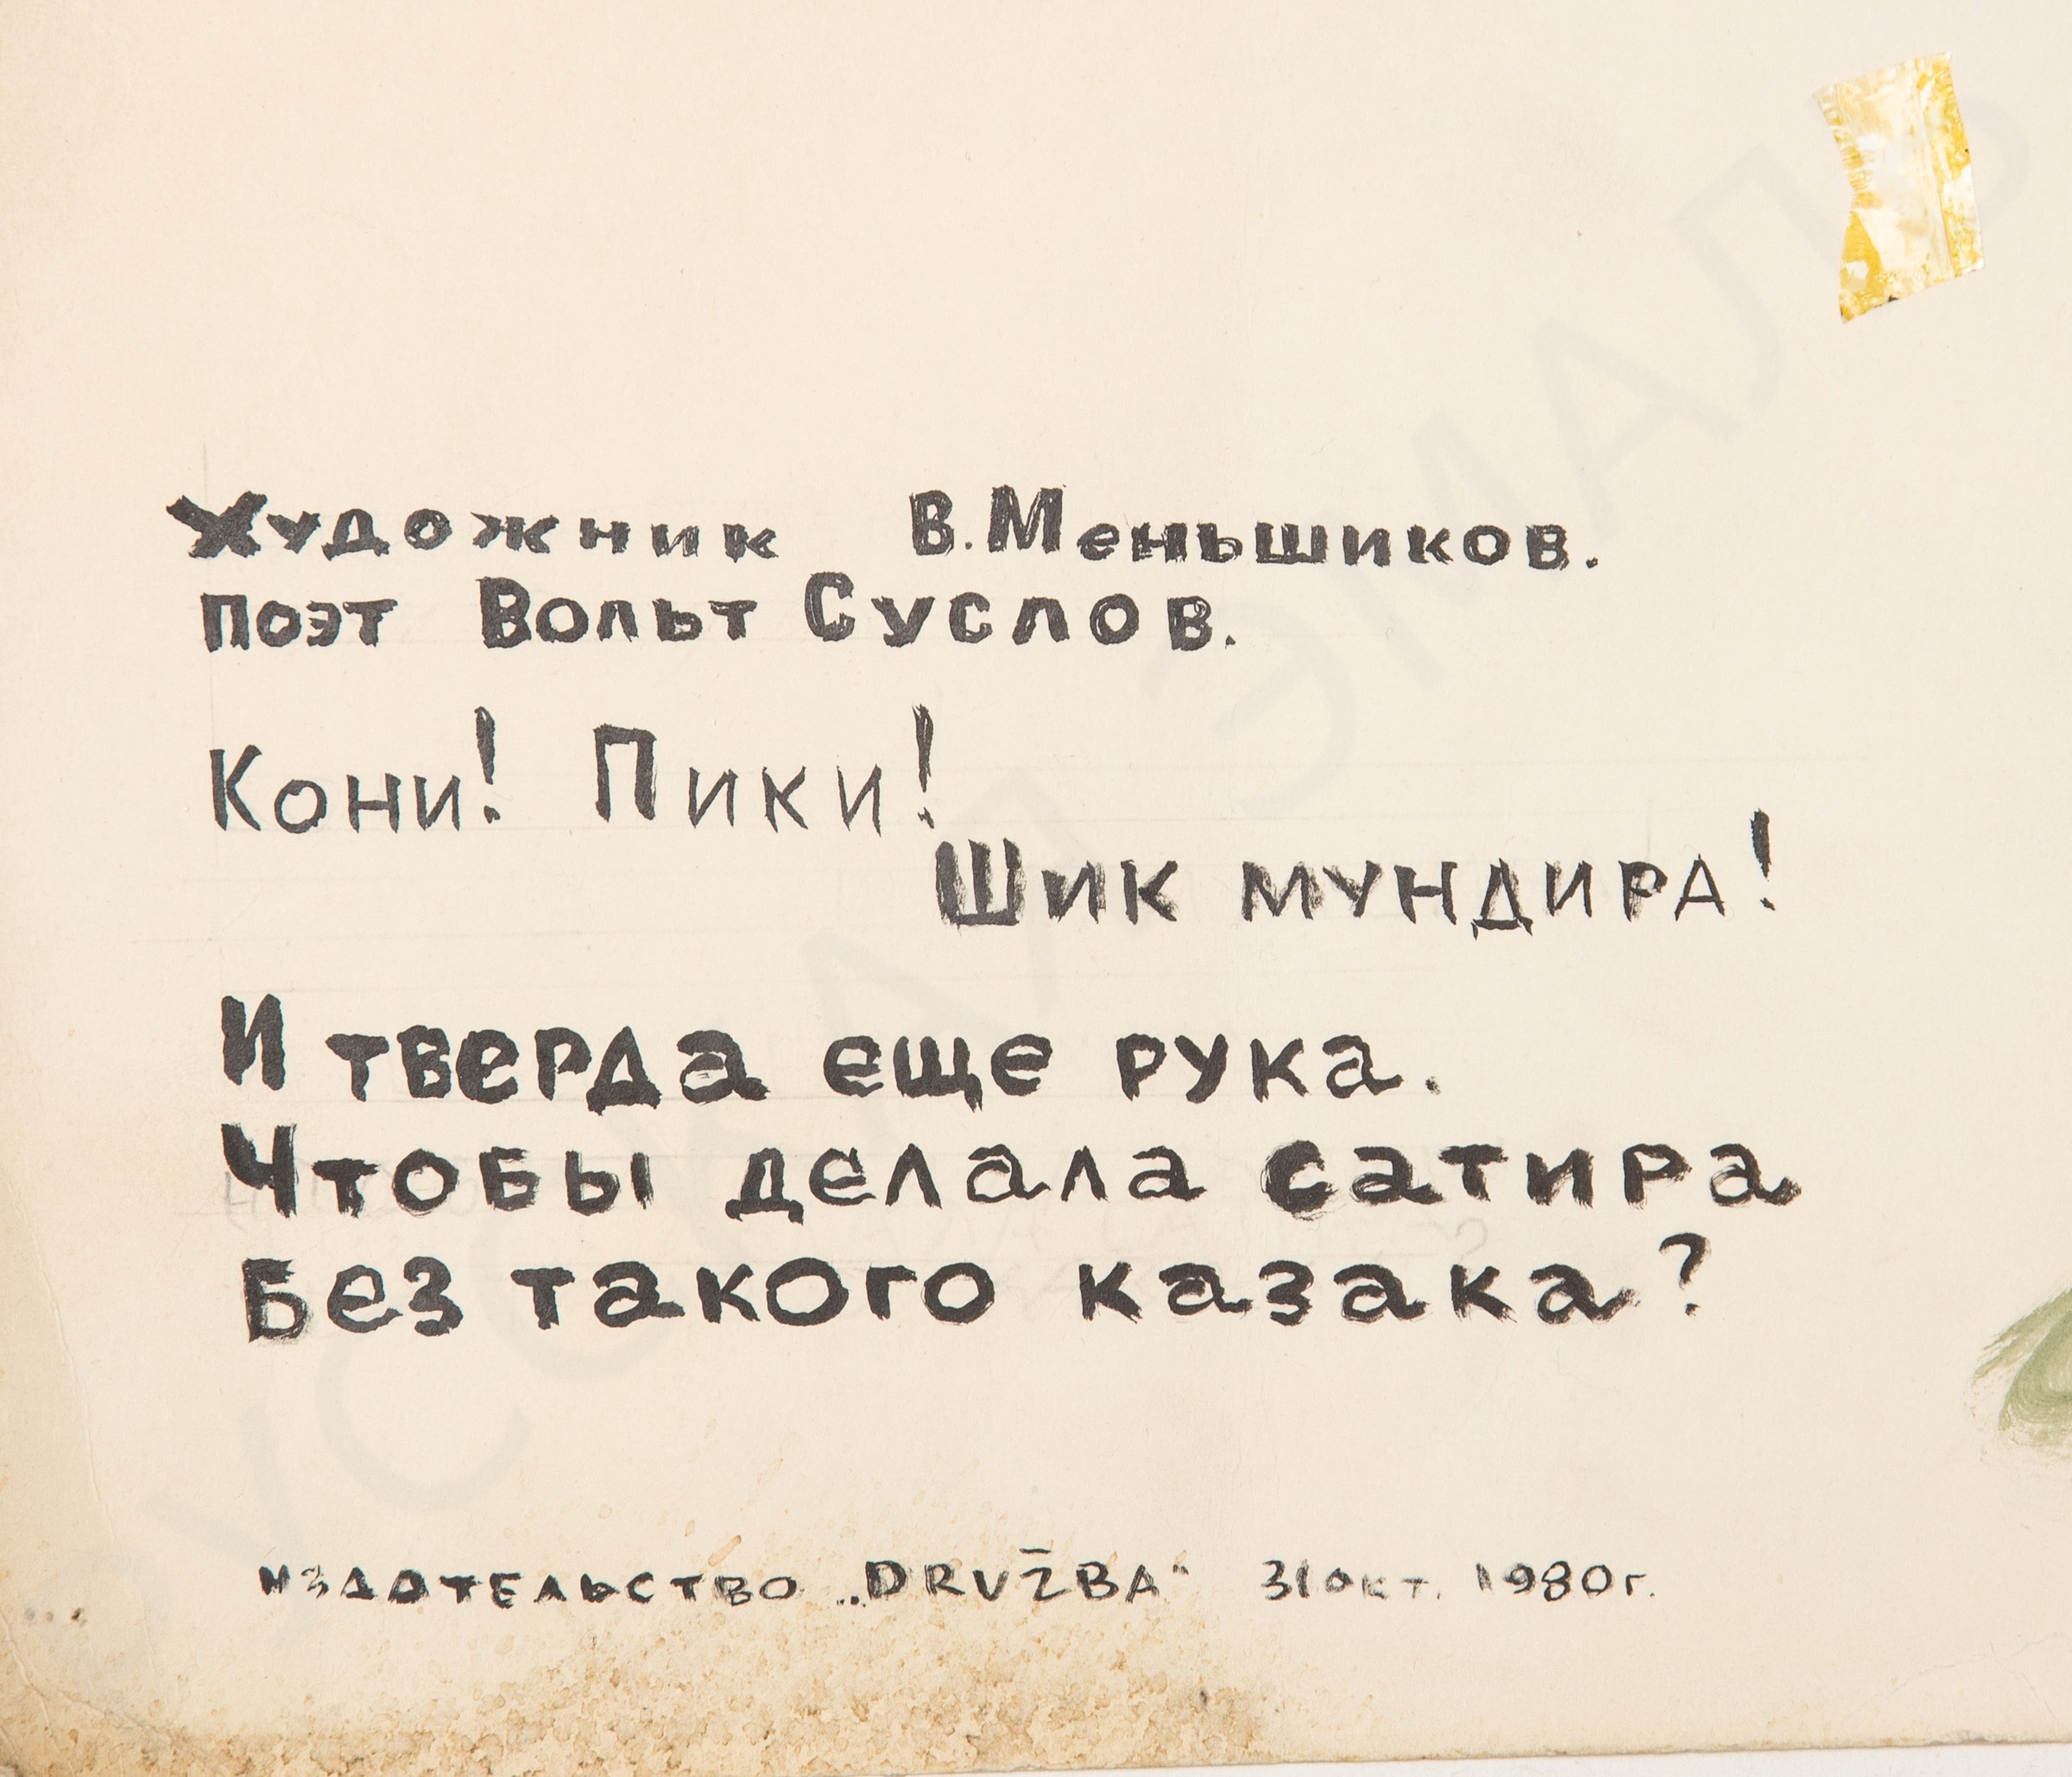 Художник В.Меньшиков.
поэт Вольт Суслов.
Кони! Пики!
Шик мундира!
И тверда еще рука.
Чтобы делала сатира
Без такого казака?
издательство „DRUŽBA“ 31 окт. 1980г.